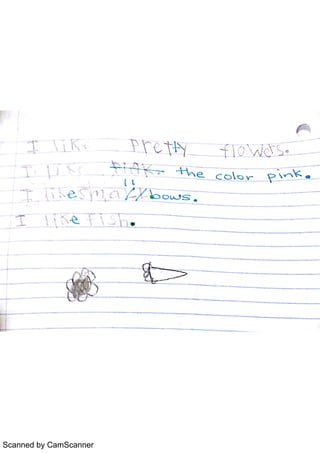 I like pretty flowers.
I like pink. the color pink.
I like small bows.
I like fish.
Scanned by CamScanner